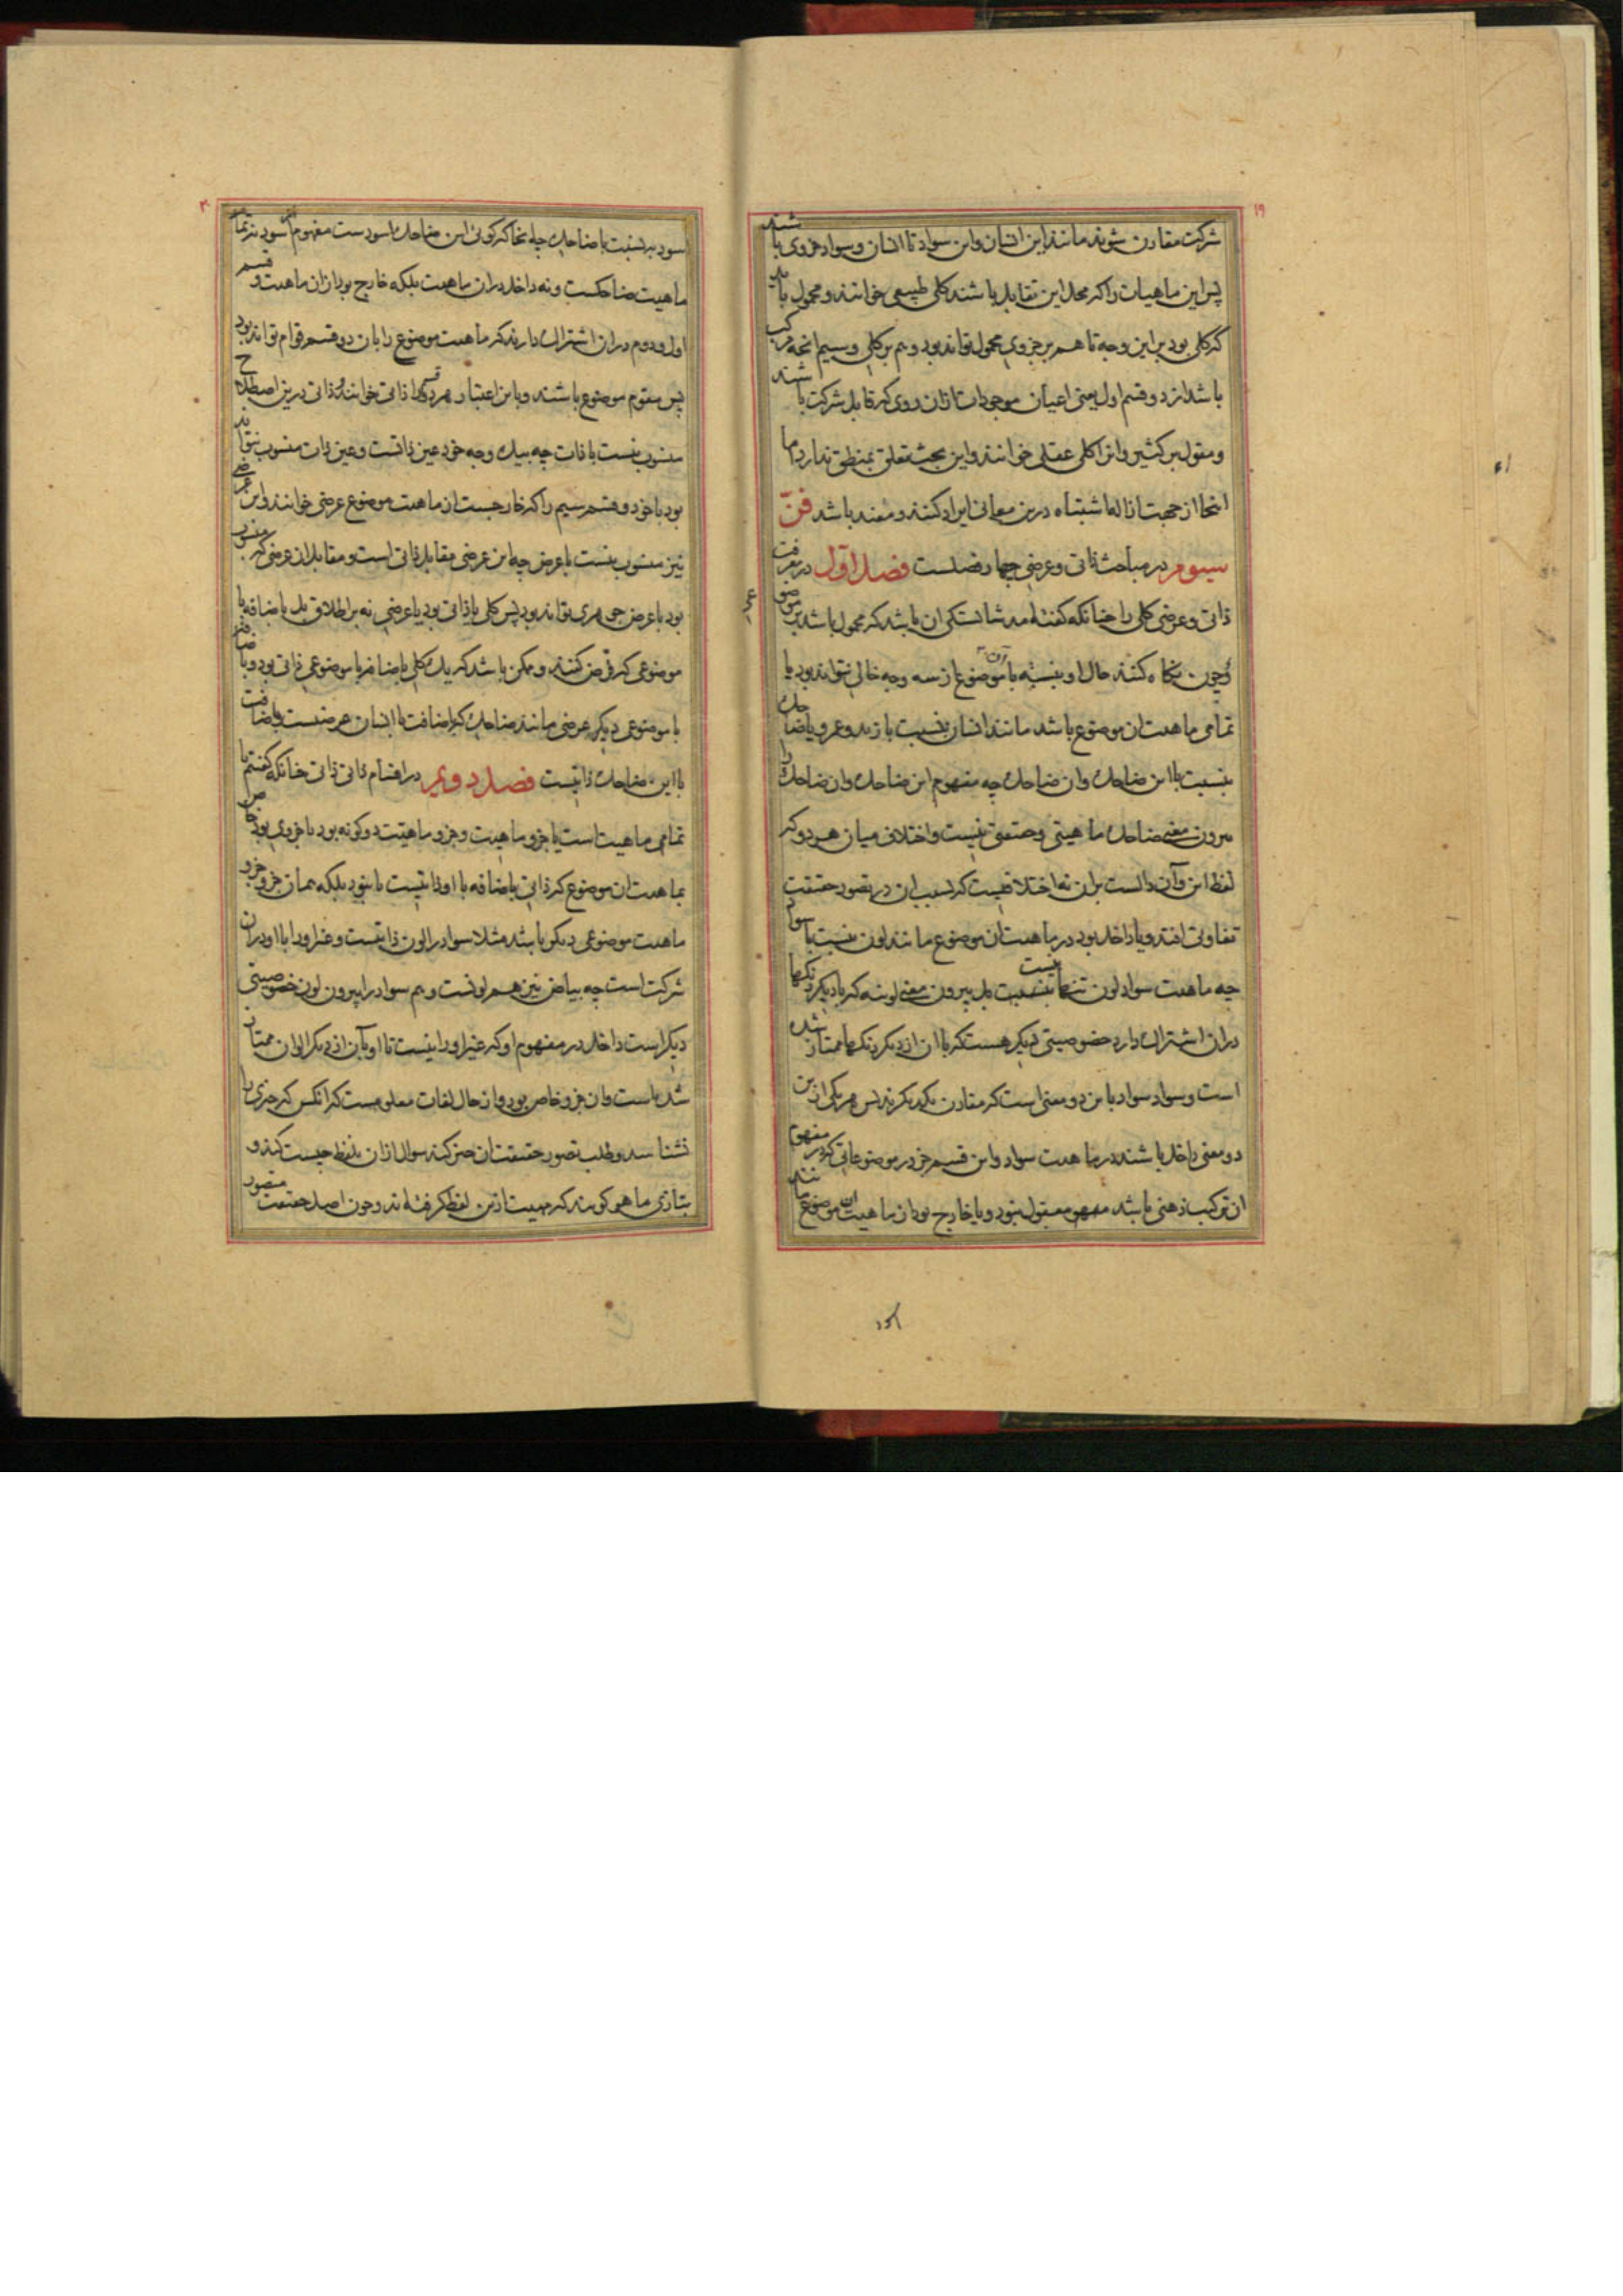 ۱۹
شرکت مقارن شوند مانند این انسان و این سواد تا انسان و سواد جزوی باشند
پس این ماهیات را که محل این تقابل باشند کلی طبیعی خوانند و محمول باید
که کلی بود برین وجه تا هم بر جزوی محمول تواند بود و هم بر کلی و سیم انچه مرکب
باشد از دو قسم اول یعنی اعیان موجودات ازان روی که قابل شرکت باشند
و مقول بر کثیر و انرا کلی عقلی خوانند و این بحث تعلق بمنطق ندارد اما
اینجا از جهت ازاله اشتباه درین معانی ایراد کنند و مفید باشد فنّ
سیوم در مباحث ذاتی و عرضی چهار فصلست فصل اول در معرفت
ذاتی و عرضی کلی را چنانکه گفته امد شایستگی ان باشد که محمول باشد بر موضوعی
و چون نگاه کنند حال او بنسبت با آن موضوع از سه وجه خالی نتواند بود یا
تمامی ماهیت ان موضوع باشد مانند انسان بنسبت با زید و عمرو یا ضاحک
بنسبت با این ضاحک و ان ضاحک چه مفهوم این ضاحک و ان ضاحک را
بیرون معنی ضاحک ماهیتی و حقیقتی نیست و اختلاف میان هر دو که
لفظ این و آن دالست بران نه اختلافیست که بسبب ان در تصور حقیقت
تفاوتی افتد و یا داخل بود در ماهیت ان موضوع مانند لون بنسبت با سواد
چه ماهیت سواد لون تنها نیست بل بیرون معنی لونیه که با دیگر رنگها
دران اشتراک دارد خصوصیتی دیگر هست که با ان از دیگر رنگها ممتاز شده
است و سواد سواد باین دو معنی است که مقارن یکدیگرند پس هر یکی ازین
دو معنی داخل باشند در ماهیت سواد و این قسم جز در موضوعاتی که در مفهوم
ان ترکیب ذهنی باشد معقول نبود و یا خارج بود از ماهیت ان موضوع مانند
۲۰
اسود بنسبت با ضاحک چه انجا که گوئی این ضاحک اسودست مفهوم اسود نه تمام
ماهیت ضاحکست و نه داخل دران ماهیت بلکه خارج بود ازان ماهیت و قسم
اول و دوم دران اشتراک دارند که ماهیت موضوع را بان دو قسم قوام تواند بود
پس مقوم موضوع باشند و باین اعتبار هر دو قسم را ذاتی خوانند و ذاتی درین اصطلاح
منسوب نیست با ذات چه بیک وجه خود عین ذاتست و عین ذات منسوب نتواند
بود با خود و قسم سیم را که خارجست از ماهیت موضوع عرضی خوانند و این عرضی
نیز منسوب نیست با عرض چه این عرضی مقابل ذاتی است و مقابل ان عرضی که منسوب
بود با عرض جوهری تواند بود پس کلی یا ذاتی بود یا عرضی نه بر اطلاق بل باضافه با
موضوعی که فرض کنند و ممکن باشد که یک کلی باضافه با موضوعی ذاتی بود و باضافه
با موضوعی دیگر عرضی مانند ضاحک که باضافت با انسان عرضیست و باضافت
با این ضاحک ذاتیست فصل دویم در اقسام ذاتی ذاتی چنانکه گفتم یا
تمامی ماهیت است یا جزو ماهیت و جزو ماهیت دو گونه بود یا جزوی بود خاص
بماهیت ان موضوع که ذاتی باضافه با او ذاتیست یا نبود بلکه همان جزو جزو
ماهیت موضوعی دیگر باشد مثلا سواد را لون ذاتیست و غیر او را با او دران
شرکت است چه بیاض نیز هم لونست و هم سواد را بیرون لون خصوصیتی
دیگر است داخل در مفهوم او که غیر او را نیست تا او بآن از دیگر الوان ممتاز
شده است و ان جزو خاص بود و از حال لغات معلومست که انکس که چیزی را
نشناسد و طلب تصور حقیقت ان چیز کند سوال ازان بلفظ چیست کند و
بتازی ماهو گویند که ماهیت ازین لفظ گرفته اند و چون اصل حقیقت متصور